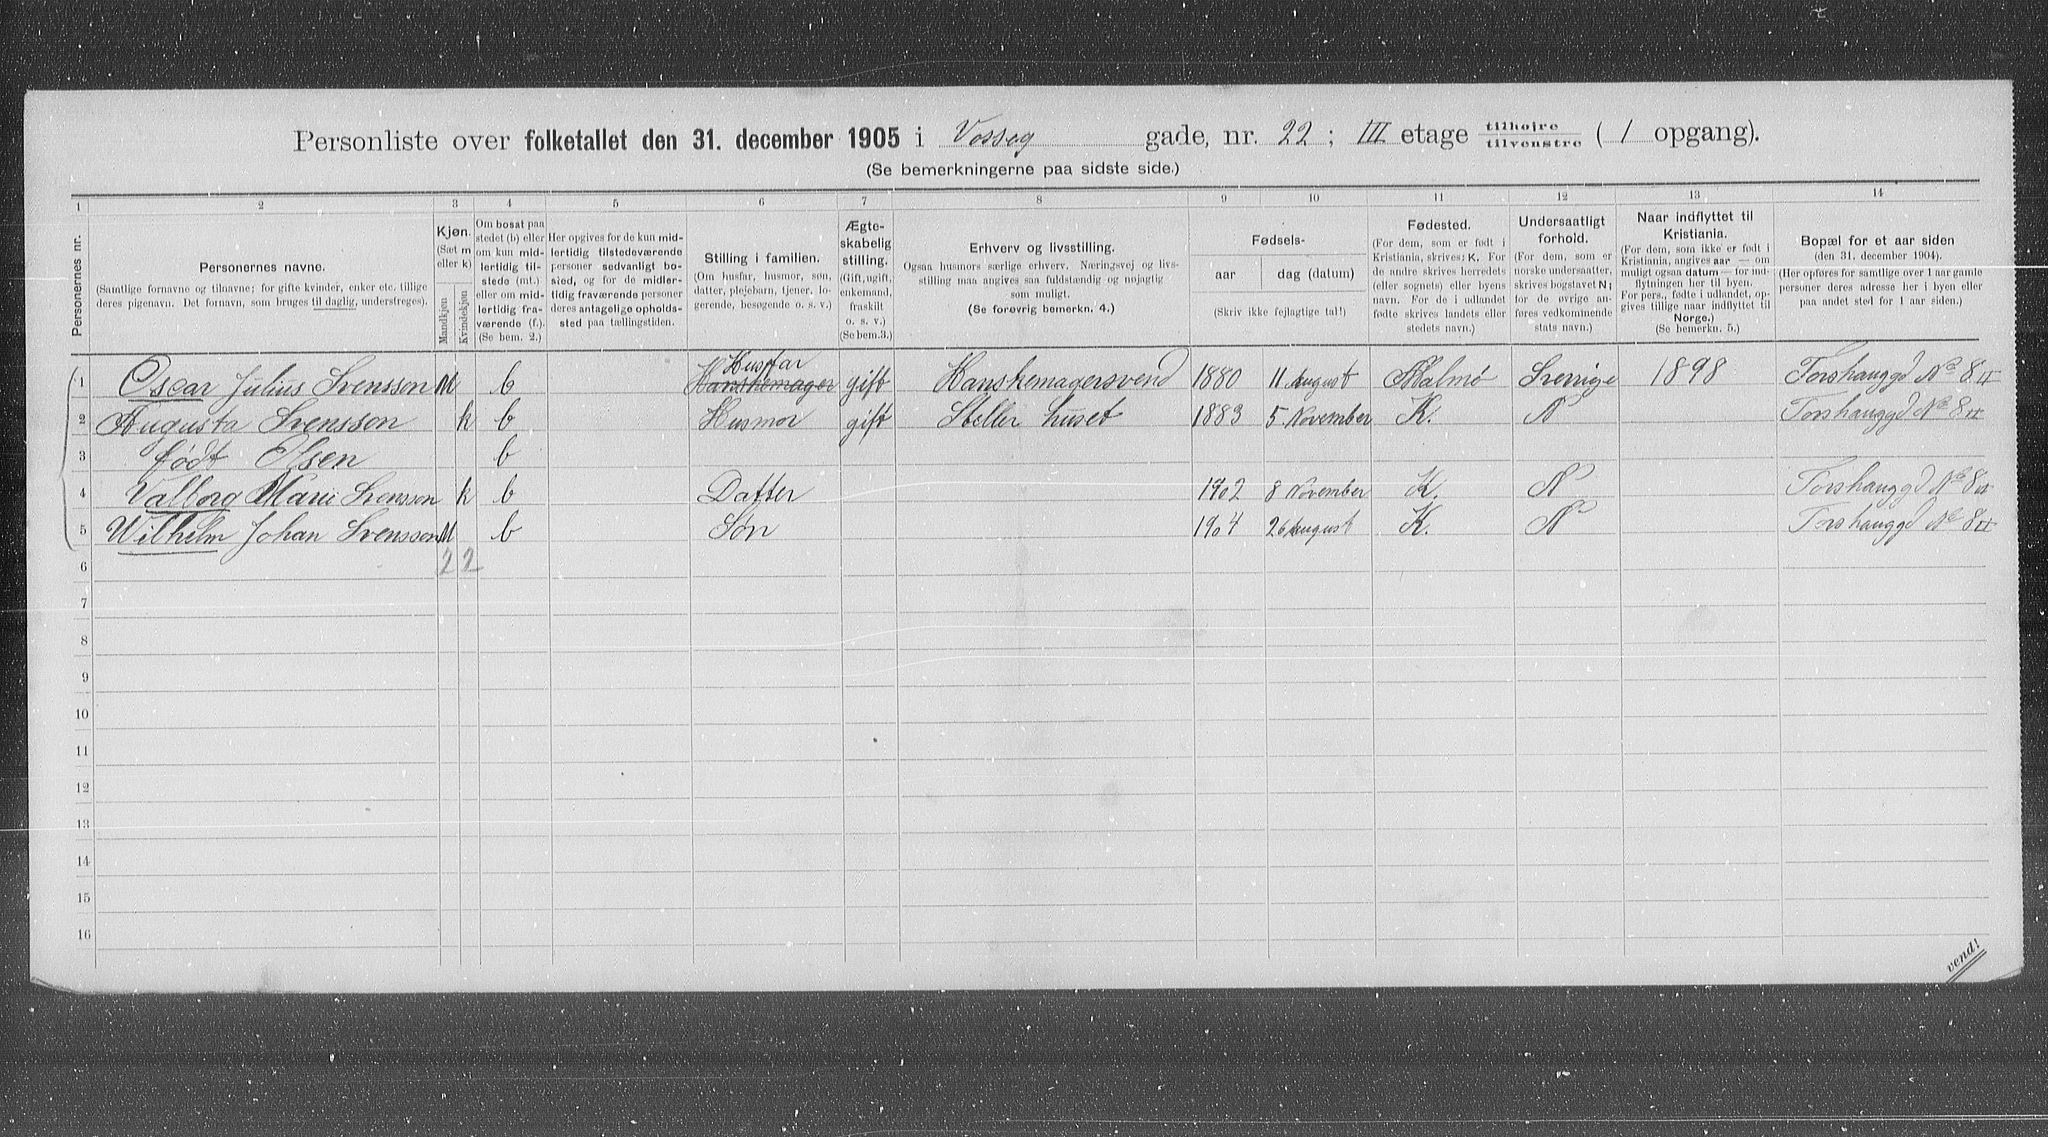 Personliste over folketallet den 31. december 1905 i Vosseg gade, nr. 22; III etage tilhøjre tilvenstre ( 1 opgang).
(Se bemerkningerne paa sidste side.)
1 2 3 4 5 6 7 8 9 10 11 12 13 14
Personernes nr.
Personernes navne.
(Samtlige fornavne og tilnavne; for gifte kvinder, enker etc. tillige deres pigenavn. Det fornavn, som bruges til daglig, understreges).
Kjøn.
(Sæt m eller k)
Mandkjøn
Kvindekjøn
Om bosat paa stedet (b) eller om kun midlertidig tilstede (mt.) eller om midlertidig fraværende (f.).
(Se bem. 2.)
Her opgives for de kun midlertidig tilstedeværende personer sedvanligt bosted, og for de midlertidig fraværende personer deres antagelige opholdssted paa tællingstiden.
Stilling i familien.
(Om husfar, husmor, søn, datter, plejebarn, tjener, logerende, besøgende o. s. v.)
Ægteskabelig stilling.
(Gift, ugift, enkemand, fraskilt o. s. v.)
(Se bem. 3.)
Erhverv og livsstilling.
Ogsaa husmors særlige erhverv. Næringsvej og livsstilling maa angives saa fuldstændig og nøjagtig som muligt.
(Se forøvrig bemerkn. 4.)
Fødsels-
aar dag (datum)
(Skriv ikke fejlagtige tal!)
Fødested.
(For dem, som er født i Kristiania, skrives: K. For de andre skrives herredets (eller sognets) eller byens navn. For de i udlandet fødte skrives landets eller stedets navn.)
Undersaatligt forhold.
(For dem, som er norske undersaatter, skrives bogstavet N; for de øvrige anføres vedkommende stats navn.)
Naar indflyttet til Kristiania.
(For dem, som ikke er født i Kristiania, angives aar — om muligt ogsaa datum — for indflytningen her til byen. For pers., fødte i udlandet, opgives tillige naar indflyttet til Norge.)
(Se bemerkn. 5.)
Bopæl for et aar siden
(den 31. december 1904).
(Her opføres for samtlige over 1 aar gamle personer deres adresse her i byen eller paa andet sted for 1 aar siden.)
1 Oscar Julius Svensson M b Hanskemager Husfar gift Hanskemagersvend 1880 11 August Malmø Sverrige 1898 Torshauggd No 8 II
2 Augusta Svensson k b Husmor gift Steller huset 1883 5 November K. N Torshauggd No 8 II
3 født Olsen b
4 Valborg Marie Svensson k b Datter 1902 8 November K. N Torshauggd No 8 II
5 Wilhelm Johan Svensson M b Søn 1904 26 August K. N Torshauggd No 8 II
6 2 2
7
8
9
10
11
12
13
14
15
16
vend!